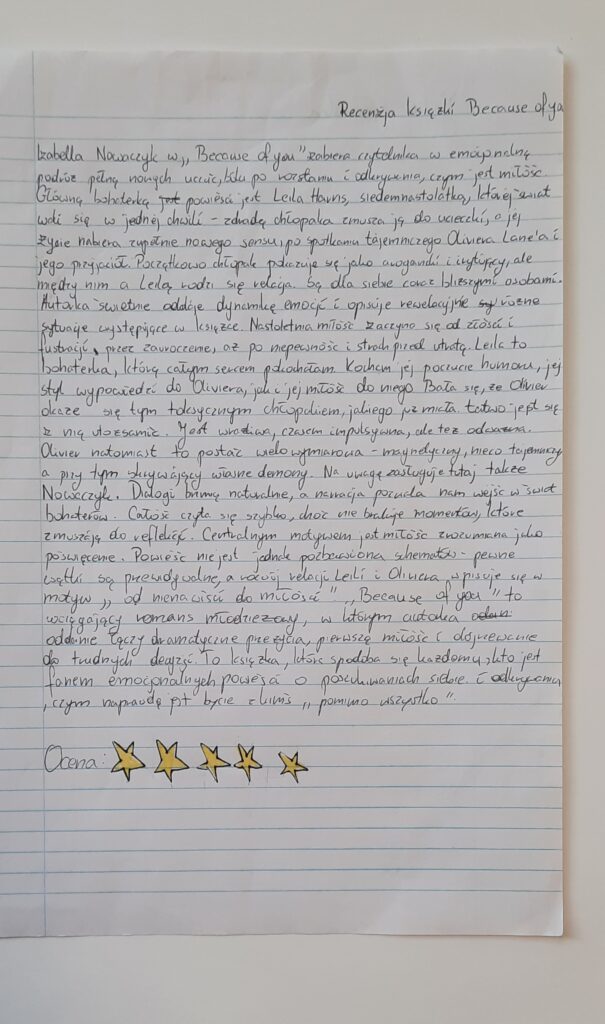 Recenzja książki Because of yo
Izabella Nowaczyk w „Because of you" zabiera czytelnika w emocjonalną
podróż pełną nowych uczuć, bólu po rozstaniu i odkrywania, czym jest miłość.
Główną bohaterką powieści jest Leila Havns, siedemnastolatka, której świat
wali się w jednej chwili - zdradą chłopaka zmusza ją do ucieczki, a jej
życie nabiera zupełnie nowego sensu, po spotkaniu tajemniczego Oliviera Lane'a i
jego przyjaciół. Początkowo chłopak pokazuje się jako arogancki i irytujący, ale
między nim a Leilą rodzi się relacja. Są dla siebie coraz bliższymi osobami.
Autorka świetnie oddaje dynamikę emocji i opisuje rewelacyjnie różne
sytuacje występujące w książce. Nastoletnia miłość zaczyna się od złości i
fustracji, przez zauroczenie, aż po niepewność i strach przed utratą. Leila to
bohaterka, którą całym sercem pokochałam. Kocham jej poczucie humoru, jej
styl wypowiedzi do Oliviera, jak i jej miłość do niego. Bała się, że Olivier
okaże się tym toksycznym chłopakiem, jakiego już miała. Łatwo jest się
z nią utożsamić. Jest wrażliwa, czasem impulsywna, ale też odważna.
Olivier natomiast to postać wielowymiarowa - magnetyczny, nieco tajemniczy
a przy tym skrywający własne demony. Na uwagę zasługuje tutaj także
Nowaczyk. Dialogi brzmią naturalnie, a narracja pozwala nam wejść w świat
bohaterów. Całość czyta się szybko, choć nie brakuje momentów, które
zmuszają do refleksji. Centralnym motywem jest miłość zrozumiana jako
poświęcenie. Powieść nie jest jednak pozbawiona schematów - pewne
wątki są przewidywalne, a rozwój relacji Leili i Oliviera wpisuje się w
motyw „ od nienawiści do miłości" „Because of you" to
wciągający romans młodzieżowy, w którym autorka
oddanie łączy dramatyczne przeżycia, pierwszą miłość i dojrzewanie
do trudnych decyzji. To książka, która spodoba się każdemu, kto jest
fanem emocjonalnych powieści o poszukiwaniach siebie i odkrywaniu
, czym naprawdę jest bycie z kimś „ pomimo wszystko".
Ocena: